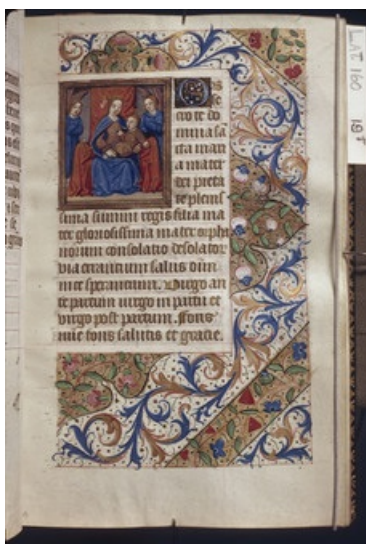 Ob
se
cro te do
mina sā
cta mari
a mater
dei pieta
te plenis
sima summi regis filia ma
ter gloriosissima mater orpha
norum consolatio desolator
via errantium salus omni
in te sperantium. Virgo an
te partum virgo in partu et
virgo post partum. Fons
mie fons salutis et gracie.
LAT 160